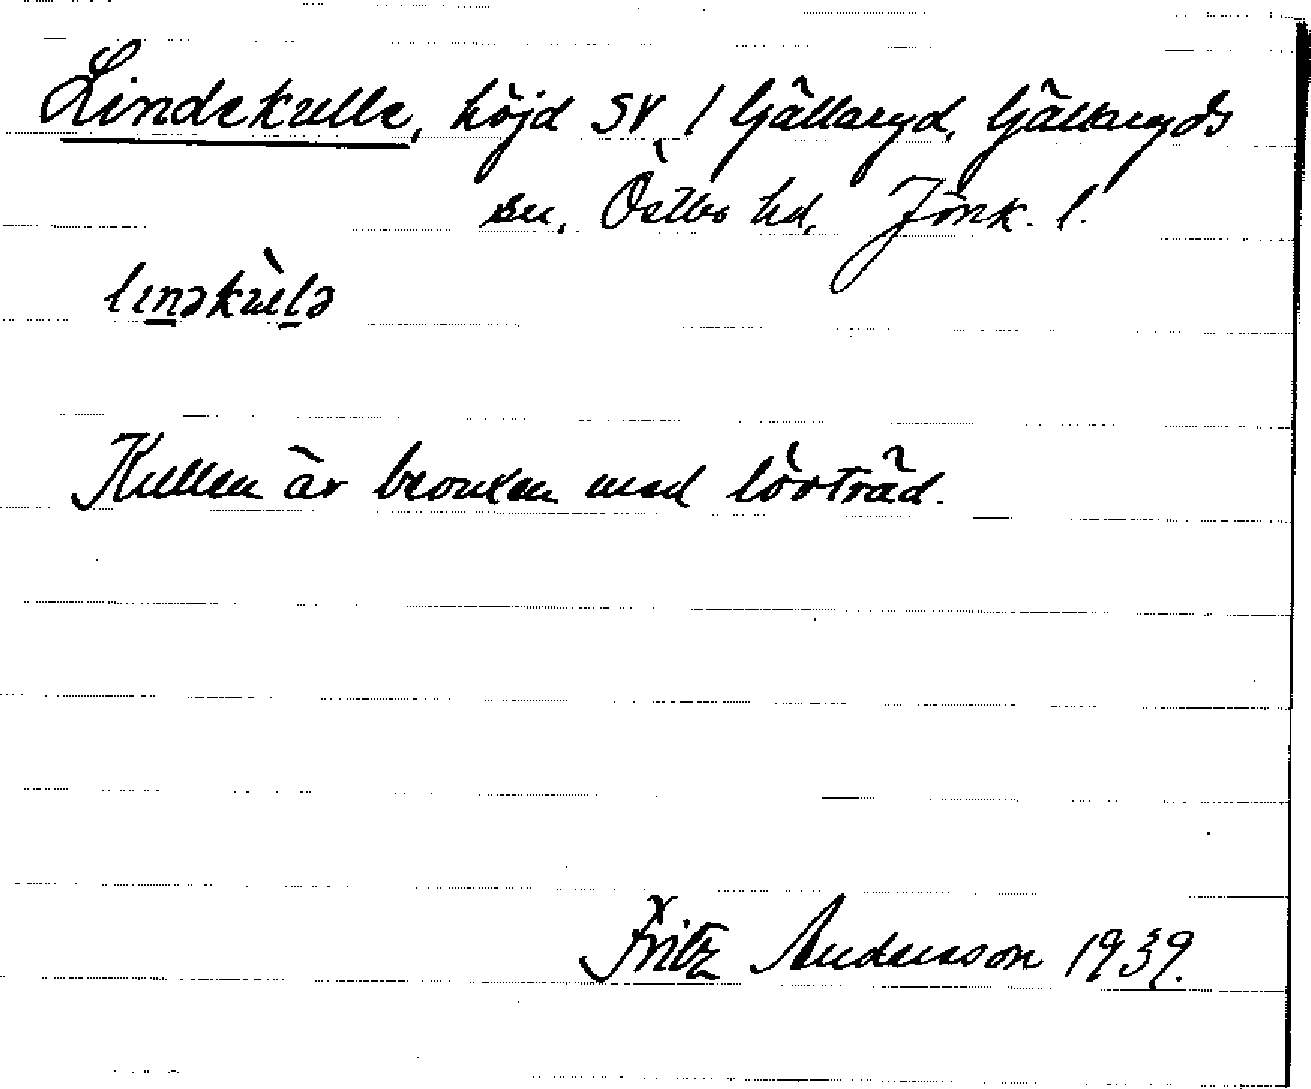 Lindekulle, höjd SV / Gällaryd, Gällaryds
sn, Östbo hd, Jönk. l.
lınəkùlə
Kullen är bevuxen med lövträd.
Fritz Andersson 1939.